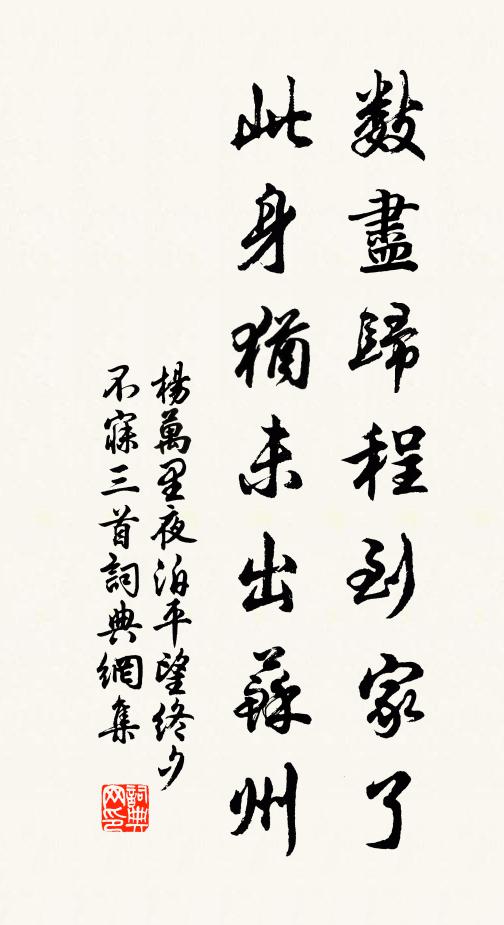 數盡歸程到家了
此身猶未出蘇州
楊萬里夜泊平望終夕
不寐三首詞典網集
詞典網印